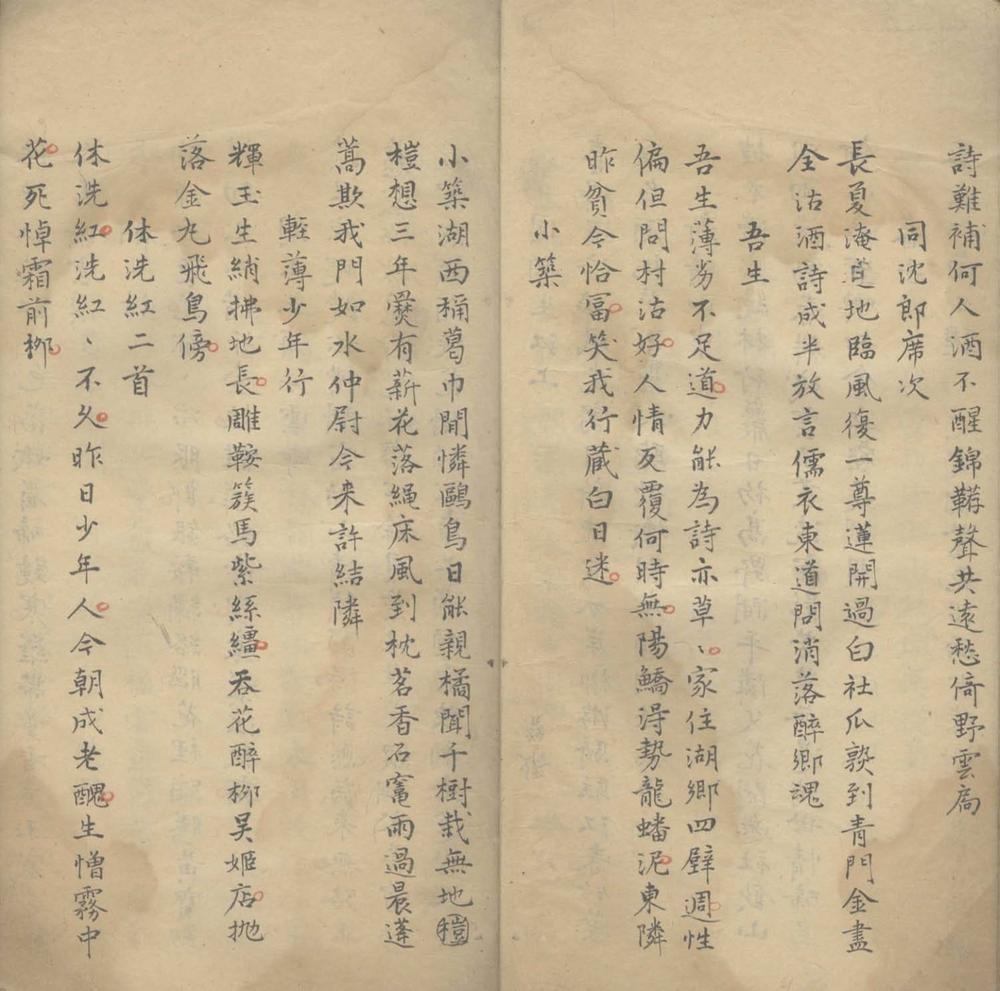 詩難補何人酒不醒錦鞯聲共遠愁倚野雲扃
同沈郎席次
長夏淹莒地臨風復一尊蓮開過白社瓜熟到青門金盡
全沽酒詩成半放言儒衣東道問消落醉鄉魂
吾生
吾生薄劣不足道力能為詩亦草、家住湖鄉四壁週性
偏但問村沽好人情反覆何時無陽鱎淂勢龍蟠泥東隣
昨貧今恰冨笑我行藏白日迷
小築
小築湖西稱葛巾閒憐鷗鳥日能親橘聞千樹栽無地榿
榿想三年爨有薪花落繩床風到枕茗香石竃雨過晨蓬
蒿欺我門如水仲尉今来許結隣
輕薄少年行
輝玉生綃拂地長雕鞍簇馬紫絲繮吞花醉栁吴姬店抛
落金丸飛鳥傍
休洗紅二首
休洗紅洗紅、不久昨日少年人今朝成老醜生憎霧中
花死悼霜前栁